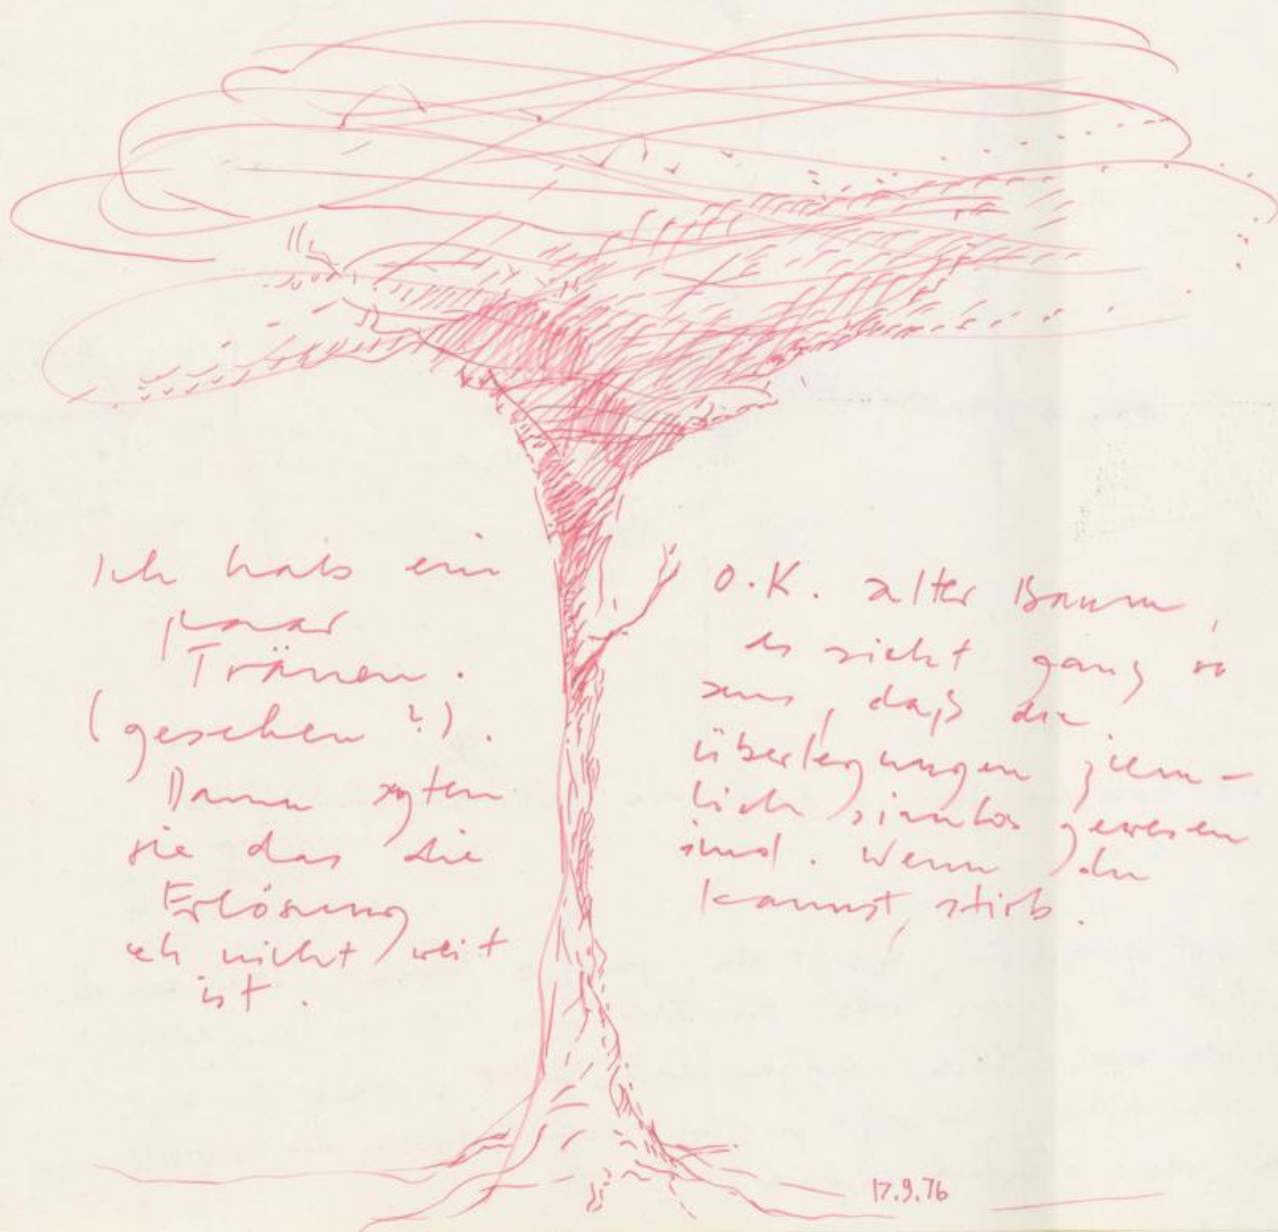 Ich hab ein
paar
Tränen.
(gesehen?).
Dann sagten
sie das die
Erlösung
eh nicht weit
ist.
O.K. alter Baum,
es sieht ganz so
aus, daß die
überlegungen ziem-
lich sinnlos gewesen
sind. Wenn du
kannst, stirb.
17.9.76